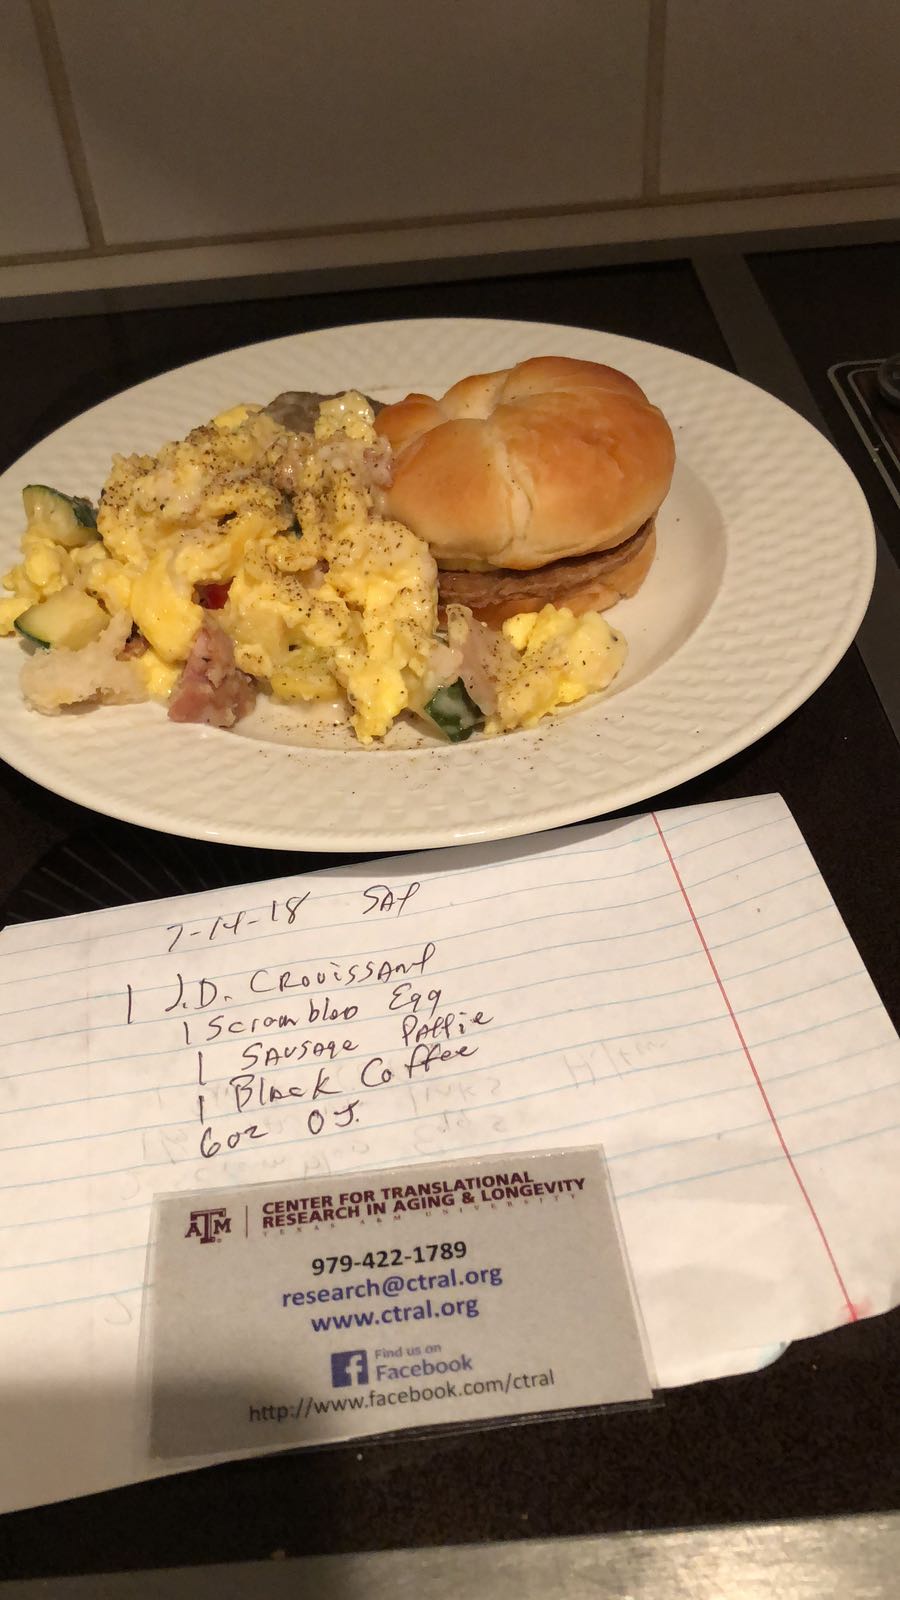 7-14-18 SAT
1 J.D. CROUISSANT
1 Scrambled Egg
1 SAUSAGE PATTIE
1 Black Coffee
6oz OJ.
ATM
CENTER FOR TRANSLATIONAL
RESEARCH IN AGING & LONGEVITY
TEXAS A&M UNIVERSITY
979-422-1789
research@ctral.org
www.ctral.org
f Find us on
Facebook
http://www.facebook.com/ctral